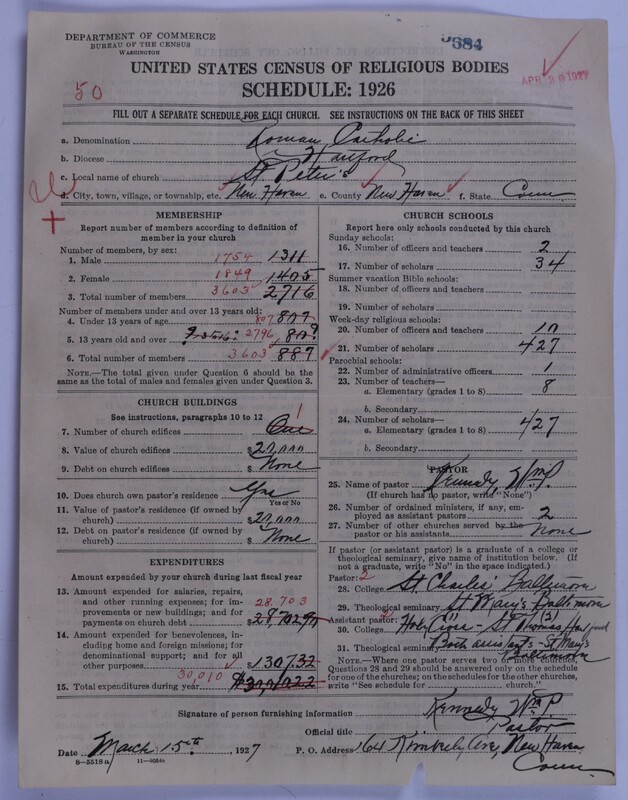 DEPARTMENT OF COMMERCE
BUREAU OF THE CENSUS
WASHINGTON
3684
UNITED STATES CENSUS OF RELIGIOUS BODIES
SCHEDULE: 1926
50
APR 1927
FILL OUT A SEPARATE SCHEDULE FOR EACH CHURCH. SEE INSTRUCTIONS ON THE BACK OF THIS SHEET
a. Denomination Roman Catholic
b. Diocese Hartford
c. Local name of church St Peter's
d. City, town, village, or township, etc. New Haven e. County New Haven f. State Conn
MEMBERSHIP
Report number of members according to definition of member in your church
Number of members, by sex:
1. Male 1754 1311
2. Female 1849 1405
3. Total number of members 3603 2716
Number of members under and over 13 years old:
4. Under 13 years of age 807 807
5. 13 years old and over 2796
6. Total number of members 3603 887
NOTE.—The total given under Question 6 should be the same as the total of males and females given under Question 3.
CHURCH BUILDINGS
See instructions, paragraphs 10 to 12
7. Number of church edifices One 1
8. Value of church edifices $20,000
9. Debt on church edifices $None
10. Does church own pastor's residence Yes
Yes or No
11. Value of pastor's residence (if owned by church) $20,000
12. Debt on pastor's residence (if owned by church) $None
EXPENDITURES
Amount expended by your church during last fiscal year
13. Amount expended for salaries, repairs, and other running expenses; for improvements or new buildings; and for payments on church debt 28.703 $28702.90
14. Amount expended for benevolences, including home and foreign missions; for denominational support; and for all other purposes $1307.32
15. Total expenditures during year 30,010
CHURCH SCHOOLS
Report here only schools conducted by this church
Sunday schools:
16. Number of officers and teachers 2
17. Number of scholars 34
Summer vacation Bible schools:
18. Number of officers and teachers
19. Number of scholars
Week-day religious schools:
20. Number of officers and teachers 10
21. Number of scholars 427
Parochial schools:
22. Number of administrative officers 1
23. Number of teachers—
a. Elementary (grades 1 to 8) 8
b. Secondary
24. Number of scholars—
a. Elementary (grades 1 to 8) 427
b. Secondary
PASTOR
25. Name of pastor Kennedy, Wm P.
(If church has no pastor, write "None")
26. Number of ordained ministers, if any, employed as assistant pastors 2
27. Number of other churches served by the pastor or his assistants None
If pastor (or assistant pastor) is a graduate of a college or theological seminary, give name of institution below. (If not a graduate, write "No" in the space indicated.)
Pastor: 2
28. College St Charles' Baltimore
29. Theological seminary St Mary's Baltimore
Assistant pastor: (3)
30. College Holy Cross - St Thomas Hartford
31. Theological seminary Both assistants - St Mary's Baltimore
NOTE.—Where one pastor serves two or more churches, Questions 28 and 29 should be answered only on the schedule for one of the churches; on the schedules for the other churches, write "See schedule for church.)
Signature of person furnishing information Kennedy Wm P.
Official title Pastor
Date March 15th, 1927 P. O. Address 164 Kimberly Ave, New Haven
Conn
8—5518a